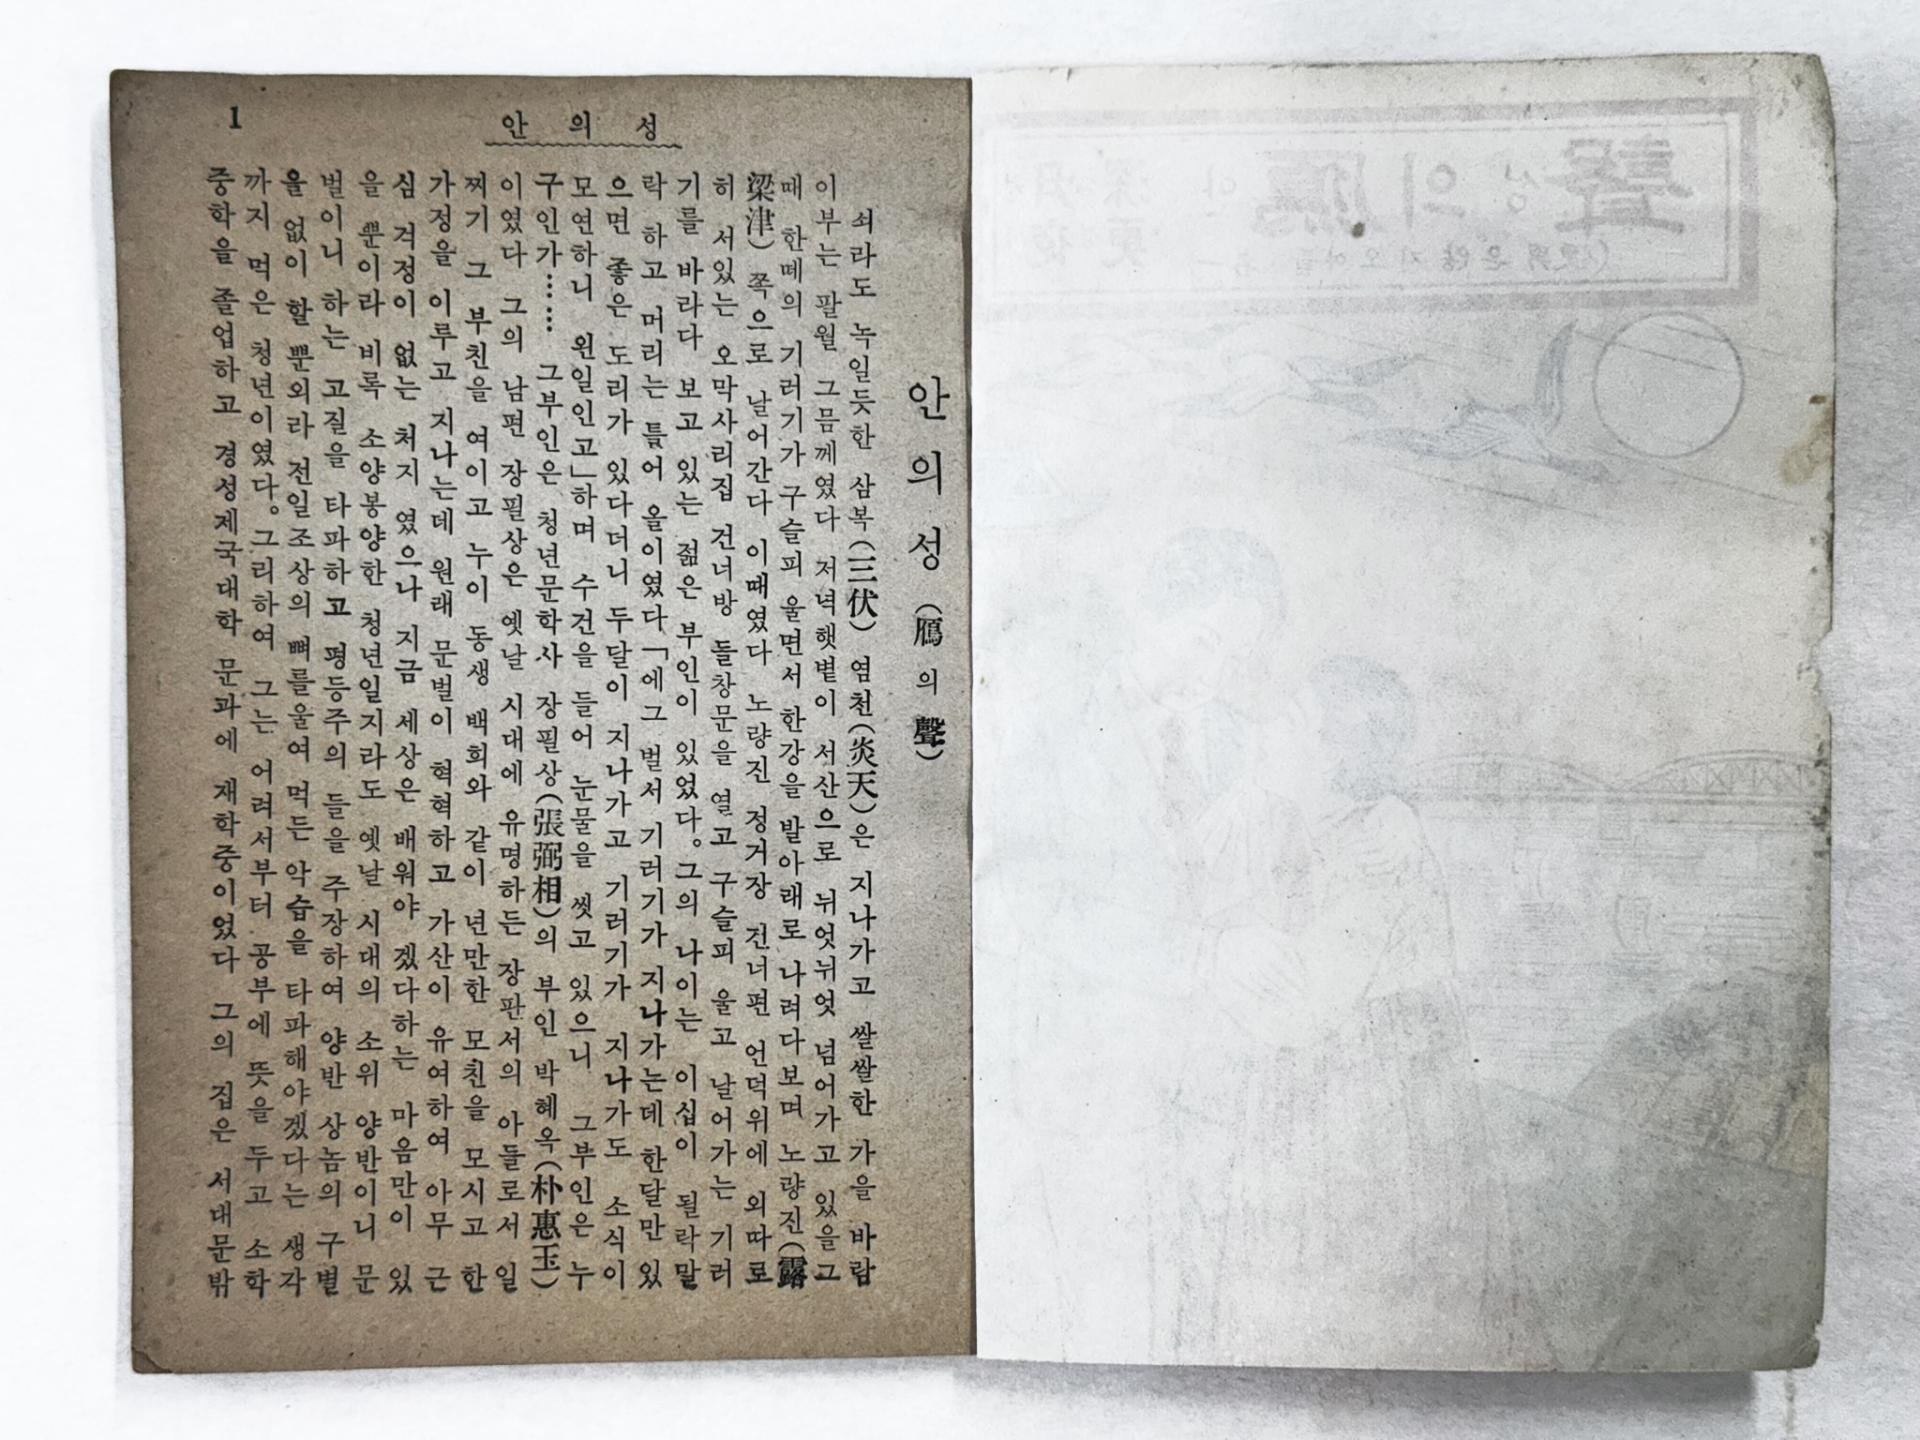 1
안의성
안의성(鴈의聲)
쇠라도 녹일듯한 삼복(三伏) 염천(炎天)은 지나가고 쌀쌀한 가을 바람
이부는 팔월 그믐께였다 저녁햇볕이 서산으로 뉘엇뉘엇 넘어가고 있을그
때 한떼의 기러기가 구슬피 울면서 한강을 발아래로 나려다보며 노량진(露
梁津) 쪽으로 날어간다 이때였다 노량진 정거장 건너편 언덕위에 외따로
히 서있는 오막사리집 건너방 들창문을 열고 구슬피 울고 날어가는 기러
기를 바라다 보고 있는 젊은 부인이 있었다。그의 나이는 이십이 될락말
락 하고 머리는 틀어 올이였다「에그 벌서 기러기가 지나가는데 한달만 있
으면 좋은 도리가 있다더니 두달이 지나가고 기러기가 지나가도 소식이
모연하니 왼일인고」하며 수건을 들어 눈물을 씻고 있으니 그부인은 누
구인가…… 그부인은 청년문학사 장필상(張弼相)의 부인 박혜옥(朴惠玉)
이였다 그의 남편 장필상은 옛날 시대에 유명하든 장판서의 아들로서 일
찌기 그 부친을 여이고 누이 동생 백희와 같이 년만한 모친을 모시고 한
가정을 이루고 지나는데 원래 문벌이 혁혁하고 가산이 유여하여 아무 근
심 걱정이 없는 처지 였으나 지금 세상은 배워야 겠다하는 마음만이 있
을 뿐이라 비록 소양봉양한 청년일지라도 옛날 시대의 소위 양반이니 문
벌이니 하는 고질을 타파하고 평등주의 들을 주장하여 양반 상놈의 구별
을 없이 할 뿐외라 전일조상의 뼈를울여먹든 악습을 타파해야겠다는 생각
까지 먹은 청년이였다。그리하여 그는 어려서부터 공부에 뜻을 두고 소학
중학을 졸업하고 경성제국대학 문과에 재학중이었다 그의 집은 서대문밖